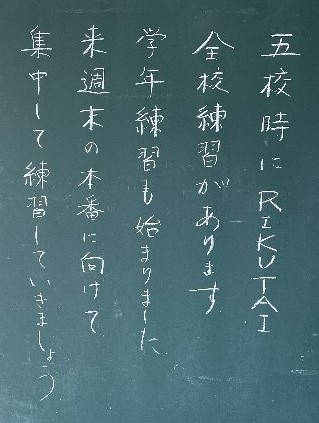 五校時にRIKUTAI
全校練習があります
学年練習も始まりました
来週末の本番に向けて
集中して練習していきましょう